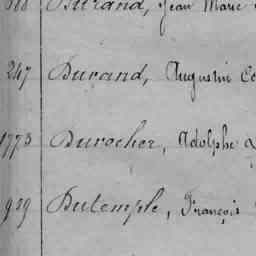 Durand, Jean Marie
247 Durand, Augustin
1773 Durocher, Adolphe
929 Dutemple, François